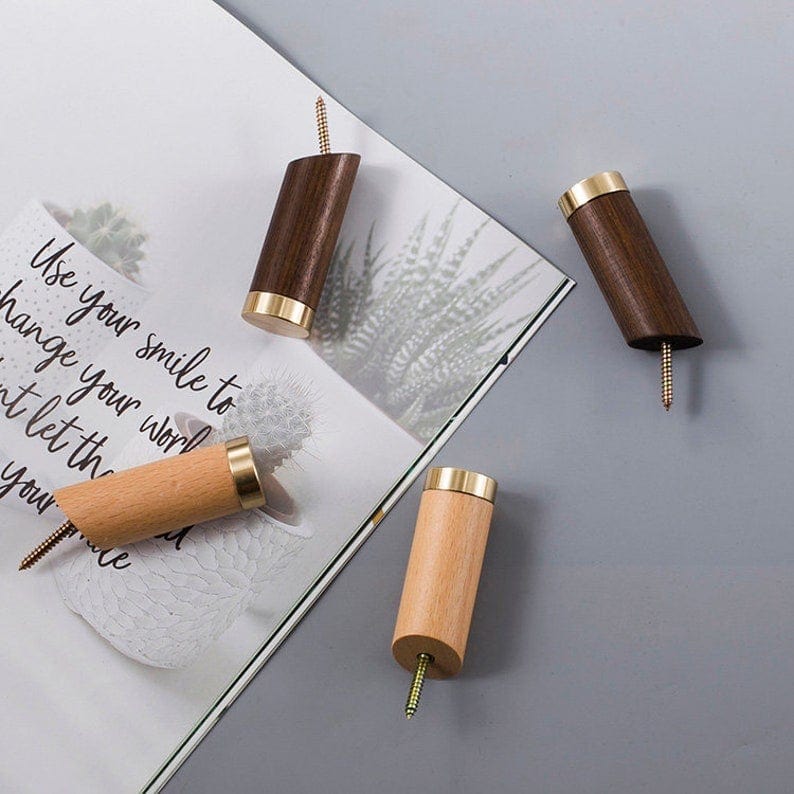 Use your smile to
change your world
n't let the
your
smile